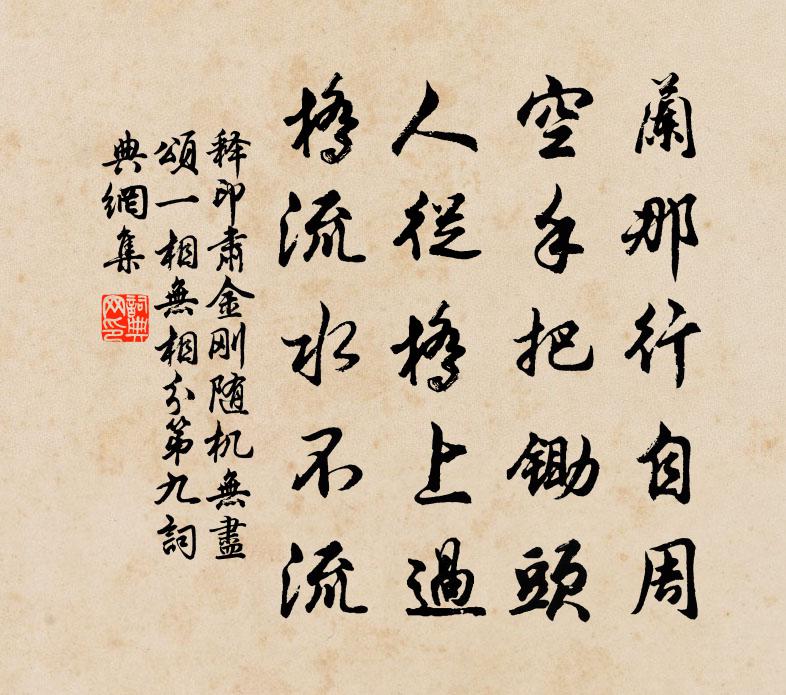 蘭那行自周
空手把鋤頭
人從橋上過
橋流水不流
释印肅金刚随机無盡
頌一相無相分第九詞
典網集
詞典網印